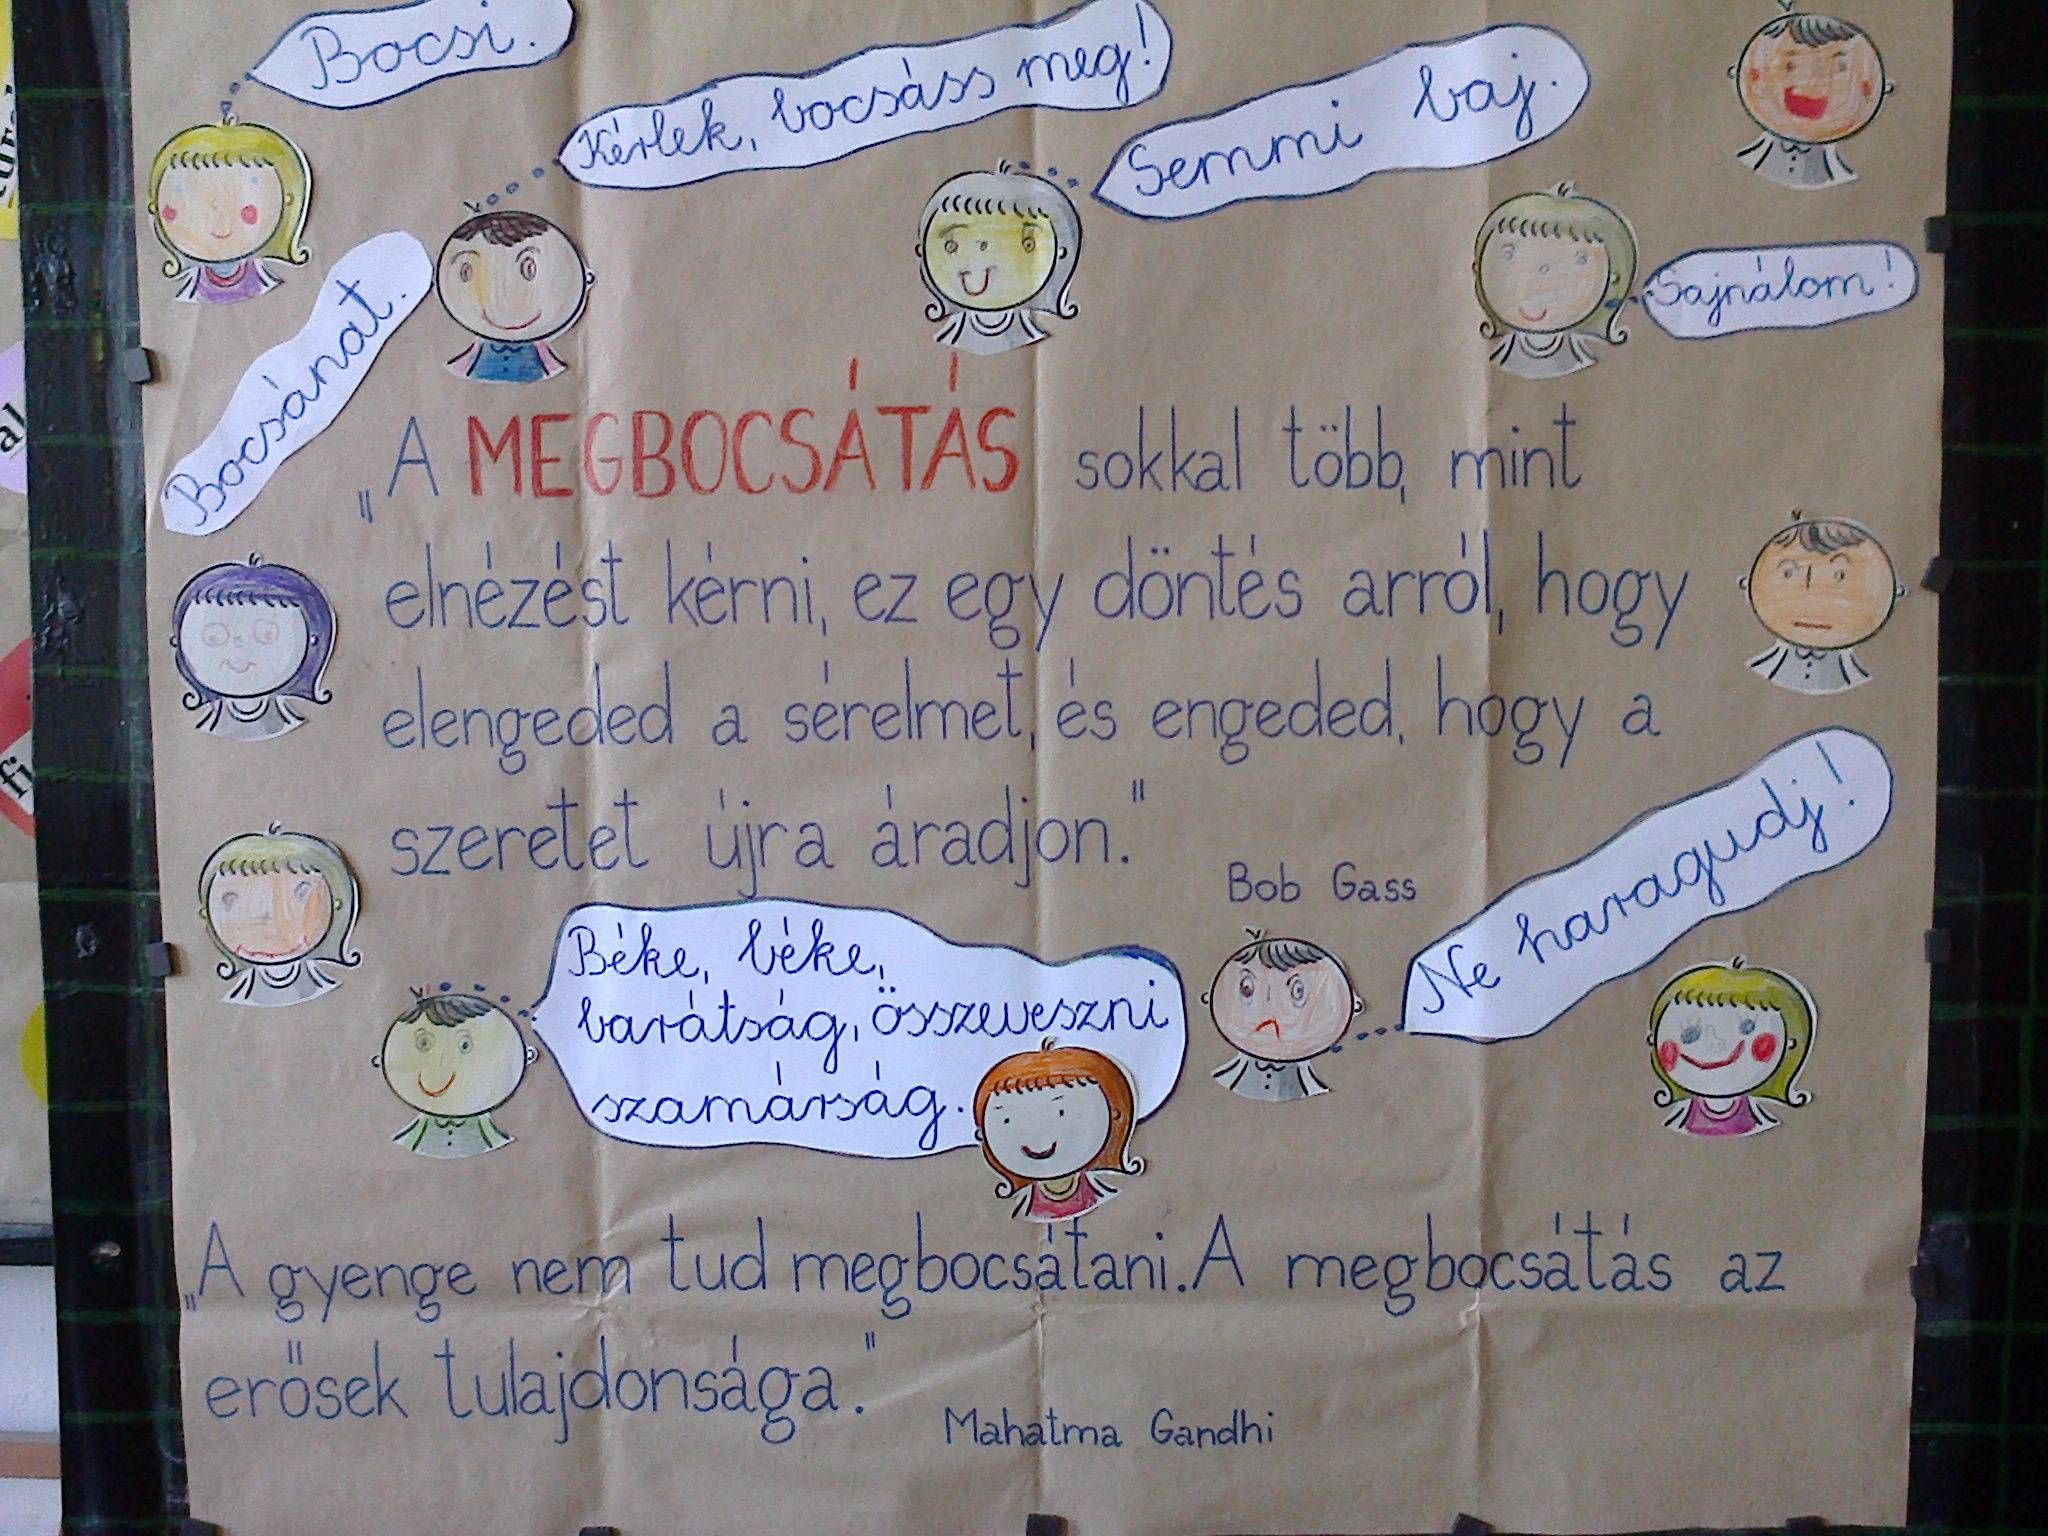 Bocsi.
Kérlek, bocsáss meg!
Semmi baj.
Sajnálom!
Bocsánat.
„A MEGBOCSÁTÁS sokkal több, mint
elnézést kérni, ez egy döntés arról, hogy
elengeded a sérelmet, és engeded, hogy a
szeretet újra áradjon."
Bob Gass
Ne haragudj!
Béke, béke,
barátság, összeveszni
szamárság.
„A gyenge nem tud megbocsátani. A megbocsátás az
erősek tulajdonsága."
Mahatma Gandhi
al
fi